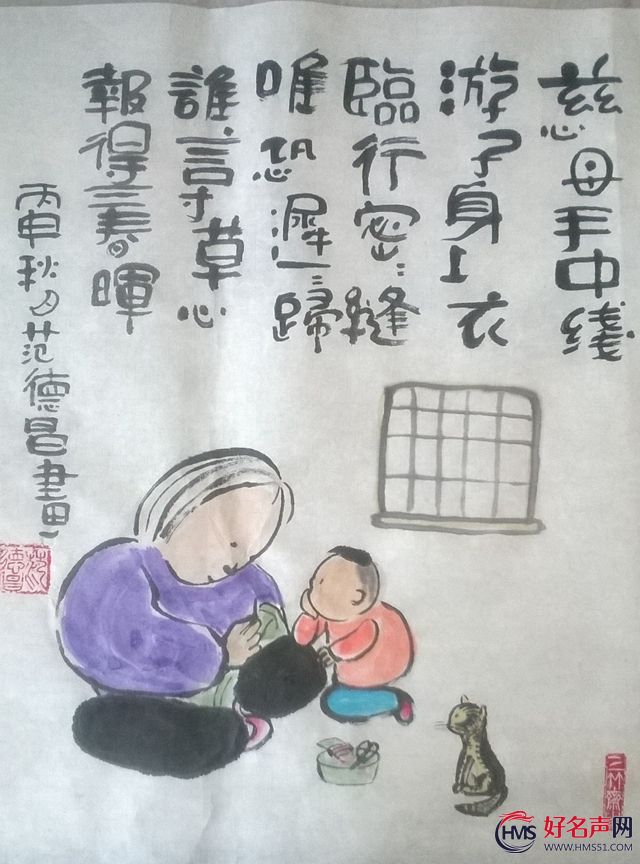 慈母手中綫
游子身上衣
臨行密〻縫
唯恐遲〻歸
誰言寸草心
報得三春暉
丙申秋月范德昌畫
二竹齋
HMS 好名声网
WWW.HMS51.COM